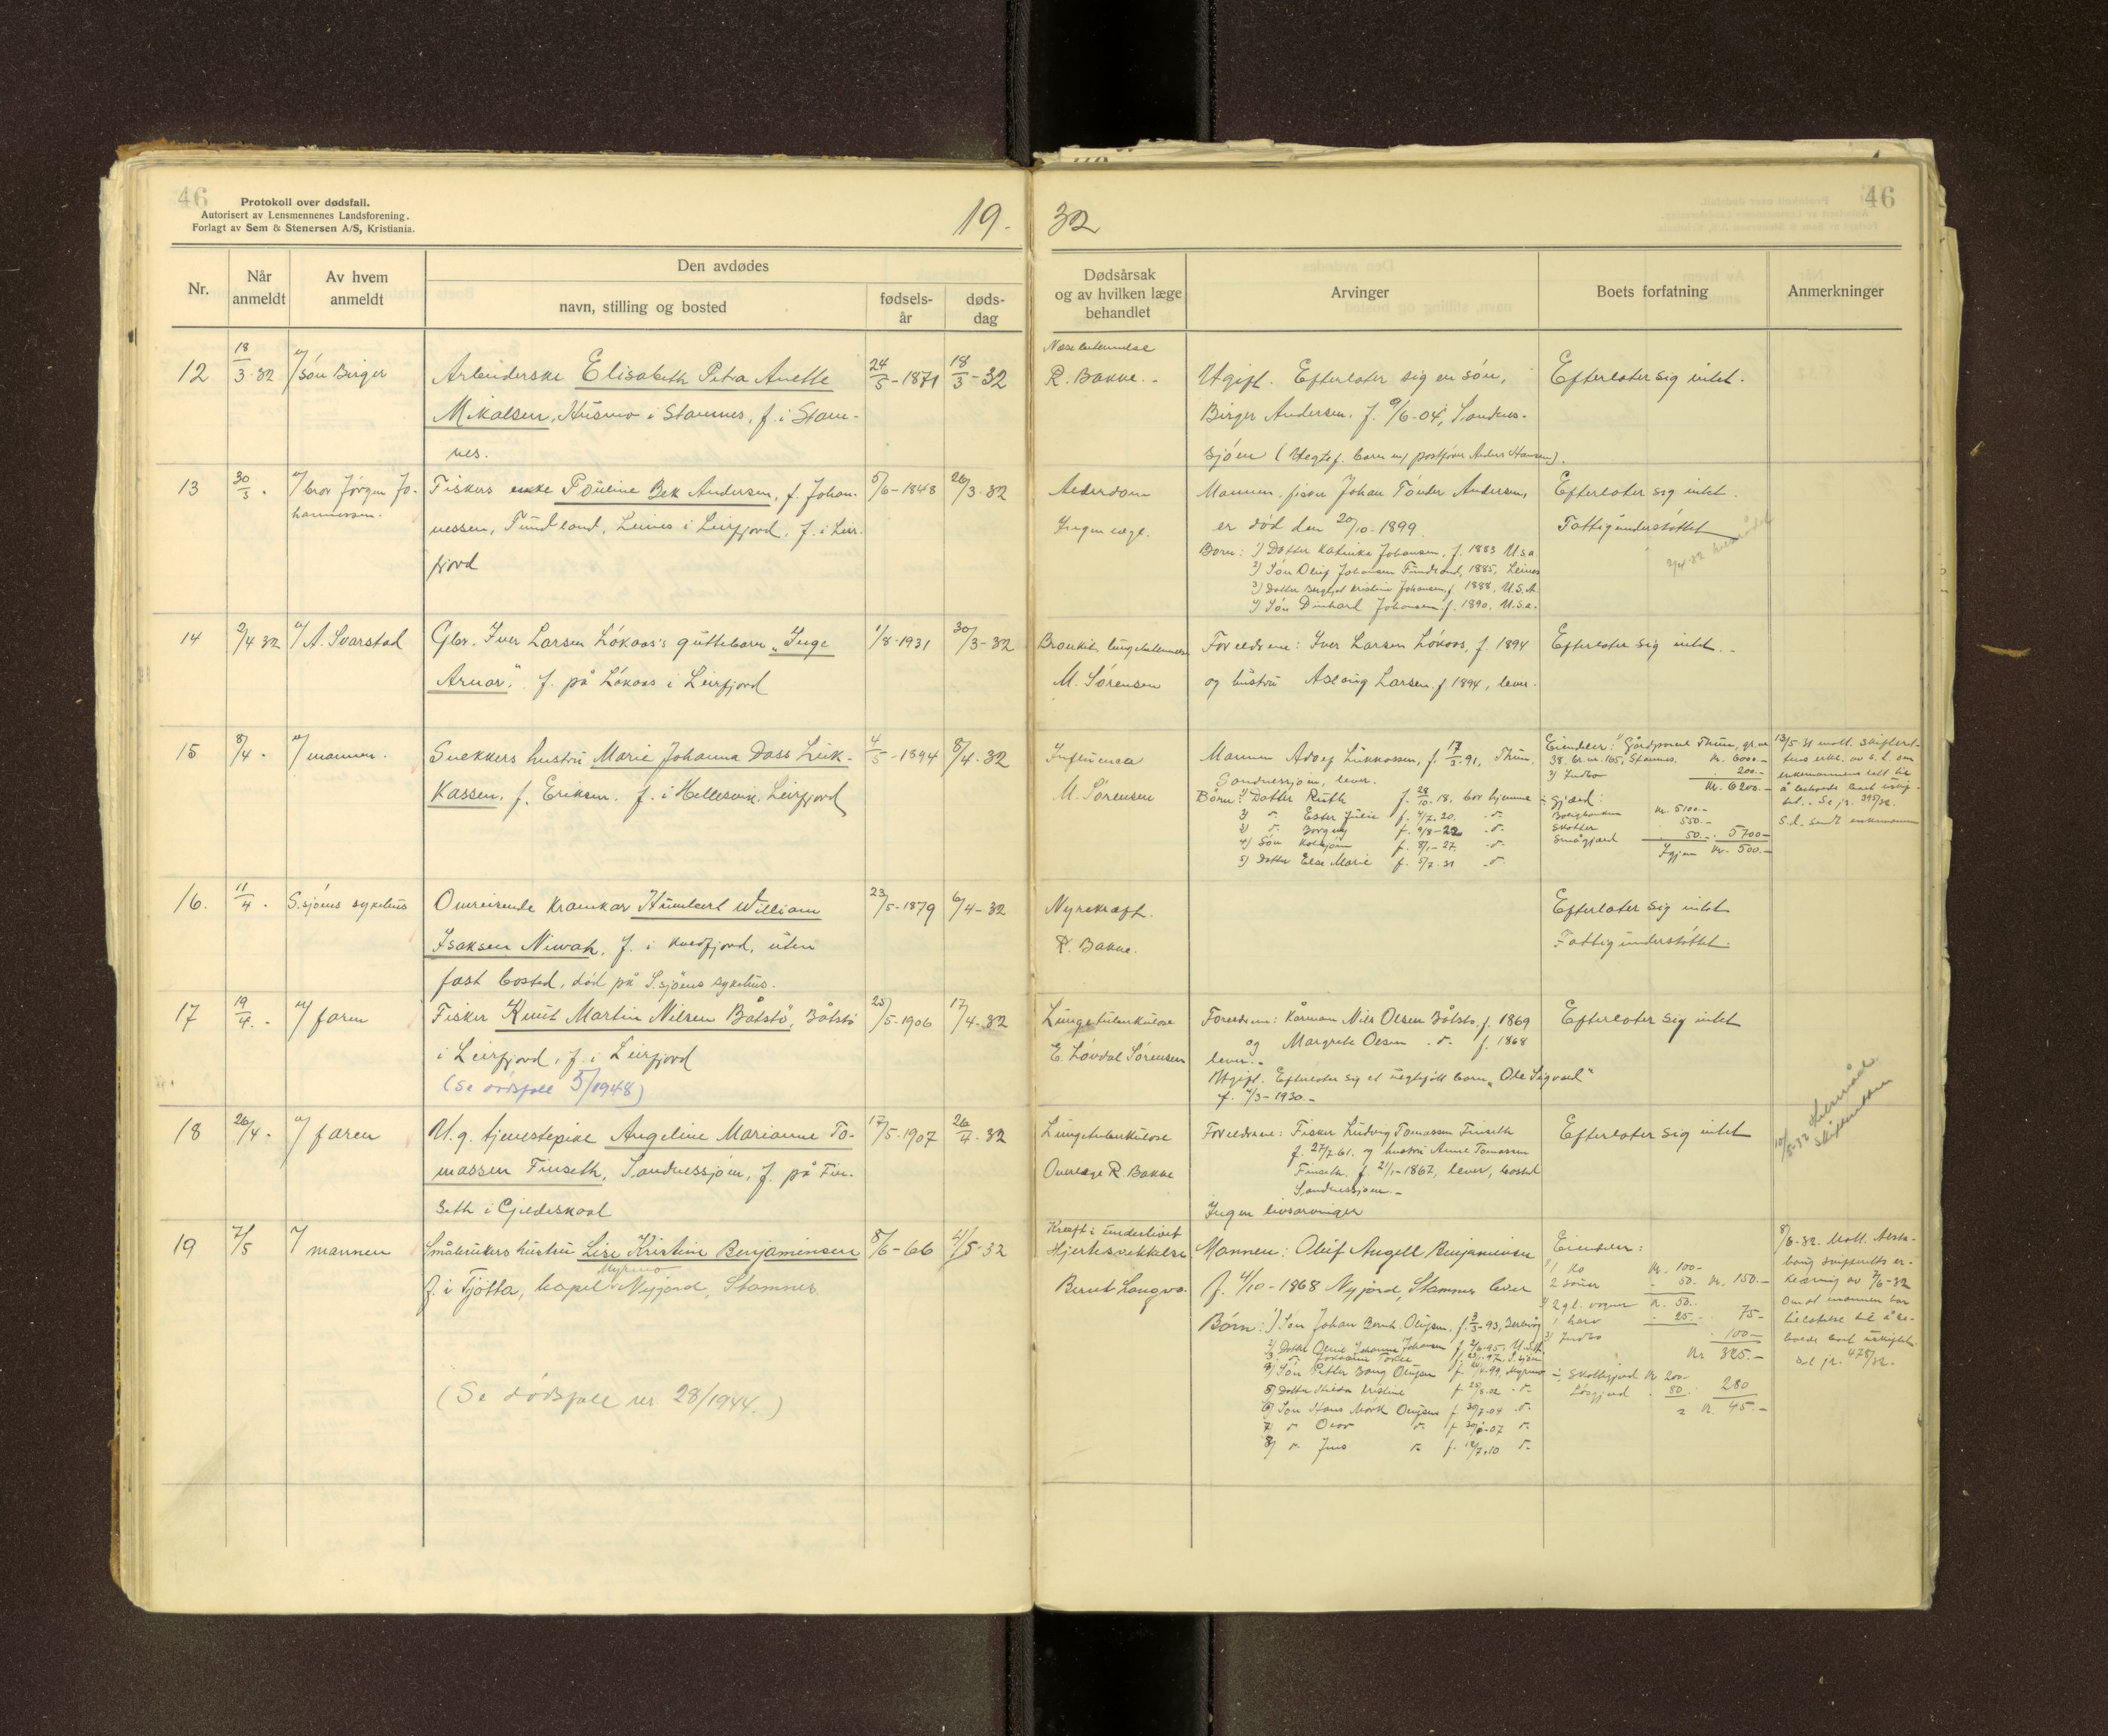 46
Protokoll over dødsfall.
Autorisert av Lensmennenes Landsforening.
Forlagt av Sem & Stenersen A/S, Kristiania.
19.
32
46
Nr.
Når anmeldt
Av hvem anmeldt
Den avdødes
navn, stilling og bosted
fødsels-år
døds-dag
Dødsårsak og av hvilken læge behandlet
Arvinger
Boets forfatning
Anmerkninger
12
18/3-32
v/ søn Birger
Arbeiderske Elisabeth Petra Anette
Mikalsen, Husmo i Stamnes, f. i Stam-
nes.
24/5-1871
18/3-32
R. Bakke.-
Ugift. Efterlater sig en søn,
Birger Andersen, f. 9/6-04, Sandnes-
sjøen (Uegte f. barn m/ postfører Anders Hansen).
Efterlater sig intet.
13
30/3.
v/ bror Jørgen Jo-
hannessen.
Fiskers enke Pauline Bek Andersen, f. Johan-
nessen, Fundland, Leines i Leirfjord, f. i Leir-
fjord
5/6-1848
26/3-32
Alderdom
Ingen læge.
Mannen, fisker Johan Tønder Andersen,
er død den 20/10-1899.
Barn: 1) Datter Katinka Johansen, f. 1883 U.s.a.
2) Søn Oluf Johansen Fundland, 1885, Leines
3) Datter Bergljot Kristine Johansen f. 1888, U.S.A.
4) Søn Johansen f. 1890, U.s.a.
Efterlater sig intet.
Fattigunderstøttet
14
2/4 32
v/ A. Svarstad
Gbr. Iver Larsen Løkaas's guttebarn "Inge
Arnar". f. på Løkaas i Leirfjord
1/8-1931
30/3-32
M. Sørensen
Foreldrene: Iver Larsen Løkaas, f. 1894
og hustru Aslaug Larsen f 1894, lever.
Efterlater sig intet.-
15
8/4.
v/ mannen.
Snekkers hustru Marie Johanna Dass Luk-
kassen, f. Eriksen. f. i Hellesvik, Leirfjord
4/5-1894
8/4-32
Influensa
M. Sørensen
Mannen Adolf Lukkassen, f. 17/3.91, Thun,
Sandnessjøen, lever.
Børn: 1) Datter Ruth f. 28/10-18, bor hjemme
2) d. Ester Julie f. 4/7-20. d.
3) d. Borgny f. 9/8-22 d.
4) Søn Kolbjørn f. 8/1-27. d.
5) Datter Else Marie f. 5/7-31 d.
Eiendeler: 1) Gårdparsel Thun, gr.nr
38, br.nr. 165, Stamnes. kr. 6000.-
2) Indbo 200.-
kr. 6200.-
÷ Gjæld:
kr. 5100.-
Skatter 550.-
Smågjæld 50.- 5700-
Igjen kr. 500.-
16.
11/4.
S.sjøens sykehus
Omreisende kramkar Humbert William
Isaksen Niwah, f. i Kvedfjord, uten
fast bosted, død på S.sjøens sykehus.
23/5-1879
6/4-32
Nyrekræft.
R. Bakke.
Efterlater sig intet
Fattigunderstøttet.
17
19/4.-
v/ faren
Fisker Knut Martin Nilsen Båtstø, Båtstø
i Leirfjord, f. i Leirfjord
(Se dødsfall 5/1948)
25/5-1906
17/4-32
Lungetuberkulose
E. Løvdal Sørensen
Foreldrene: Kårmann Nils Olsen Båtstø, f. 1869
og Margrete Olsen d. f. 1868
lever.-
Ugift. Efterlater sig et uegteføtt barn "Ole Sigvald"
f. 4/3-1930.-
Efterlater sig intet
18
26/4.
v/ faren
U.g. tjenestepike Angeline Marianne To-
massen Finseth, Sandnessjøen, f. på Fin-
seth i Gjildeskaal
17/5-1907
26/4-32
Lungetuberkulose
Overlæge R. Bakke
Foreldrene: Fisker Ludvig Tomassen Finseth
f. 27/7-61. og hustru Anne Tomassen
Finseth, f. 21/1-1867, lever, bosted
Sandnessjøen.-
Ingen livsarvinger
Efterlater sig intet
19
7/5
v/ mannen
Småbrukers hustru Lise Kristine Benjaminsen
Myrmo
f. i Tjøtta, bopel Nyjord, Stamnes.
(Se dødsfall nr 28/1944.)
8/6-66
4/5-32
Kræft i underlivet
Hjertesvekkelse
Bernt Langva.
Mannen: Oluf Angell Benjaminsen
f. 4/10-1868 Nyjord, Stamnes lever
Børn: 1) Søn Johan Bernt Olufsen, f. 3/3-93,
4) Søn Petter Bang Olufsen
5) Datter Hilda Kristine
6) Søn Hans Mørk Olufsen f 30/7-04 d.
7) d. Olav d. d.
8) d. Jens d. f. 12/7.10 d.
Eiendeler:
1) 1 ko kr. 100-
2 sauer . 50. kr. 150.-
2) 2 gl. vogner kr. 50.
1 harv 25 75-
3) Indbo 100-
kr 325.-
÷ Skattegjæld kr 200-
Løsgjæld 80 280
= kr. 45.-